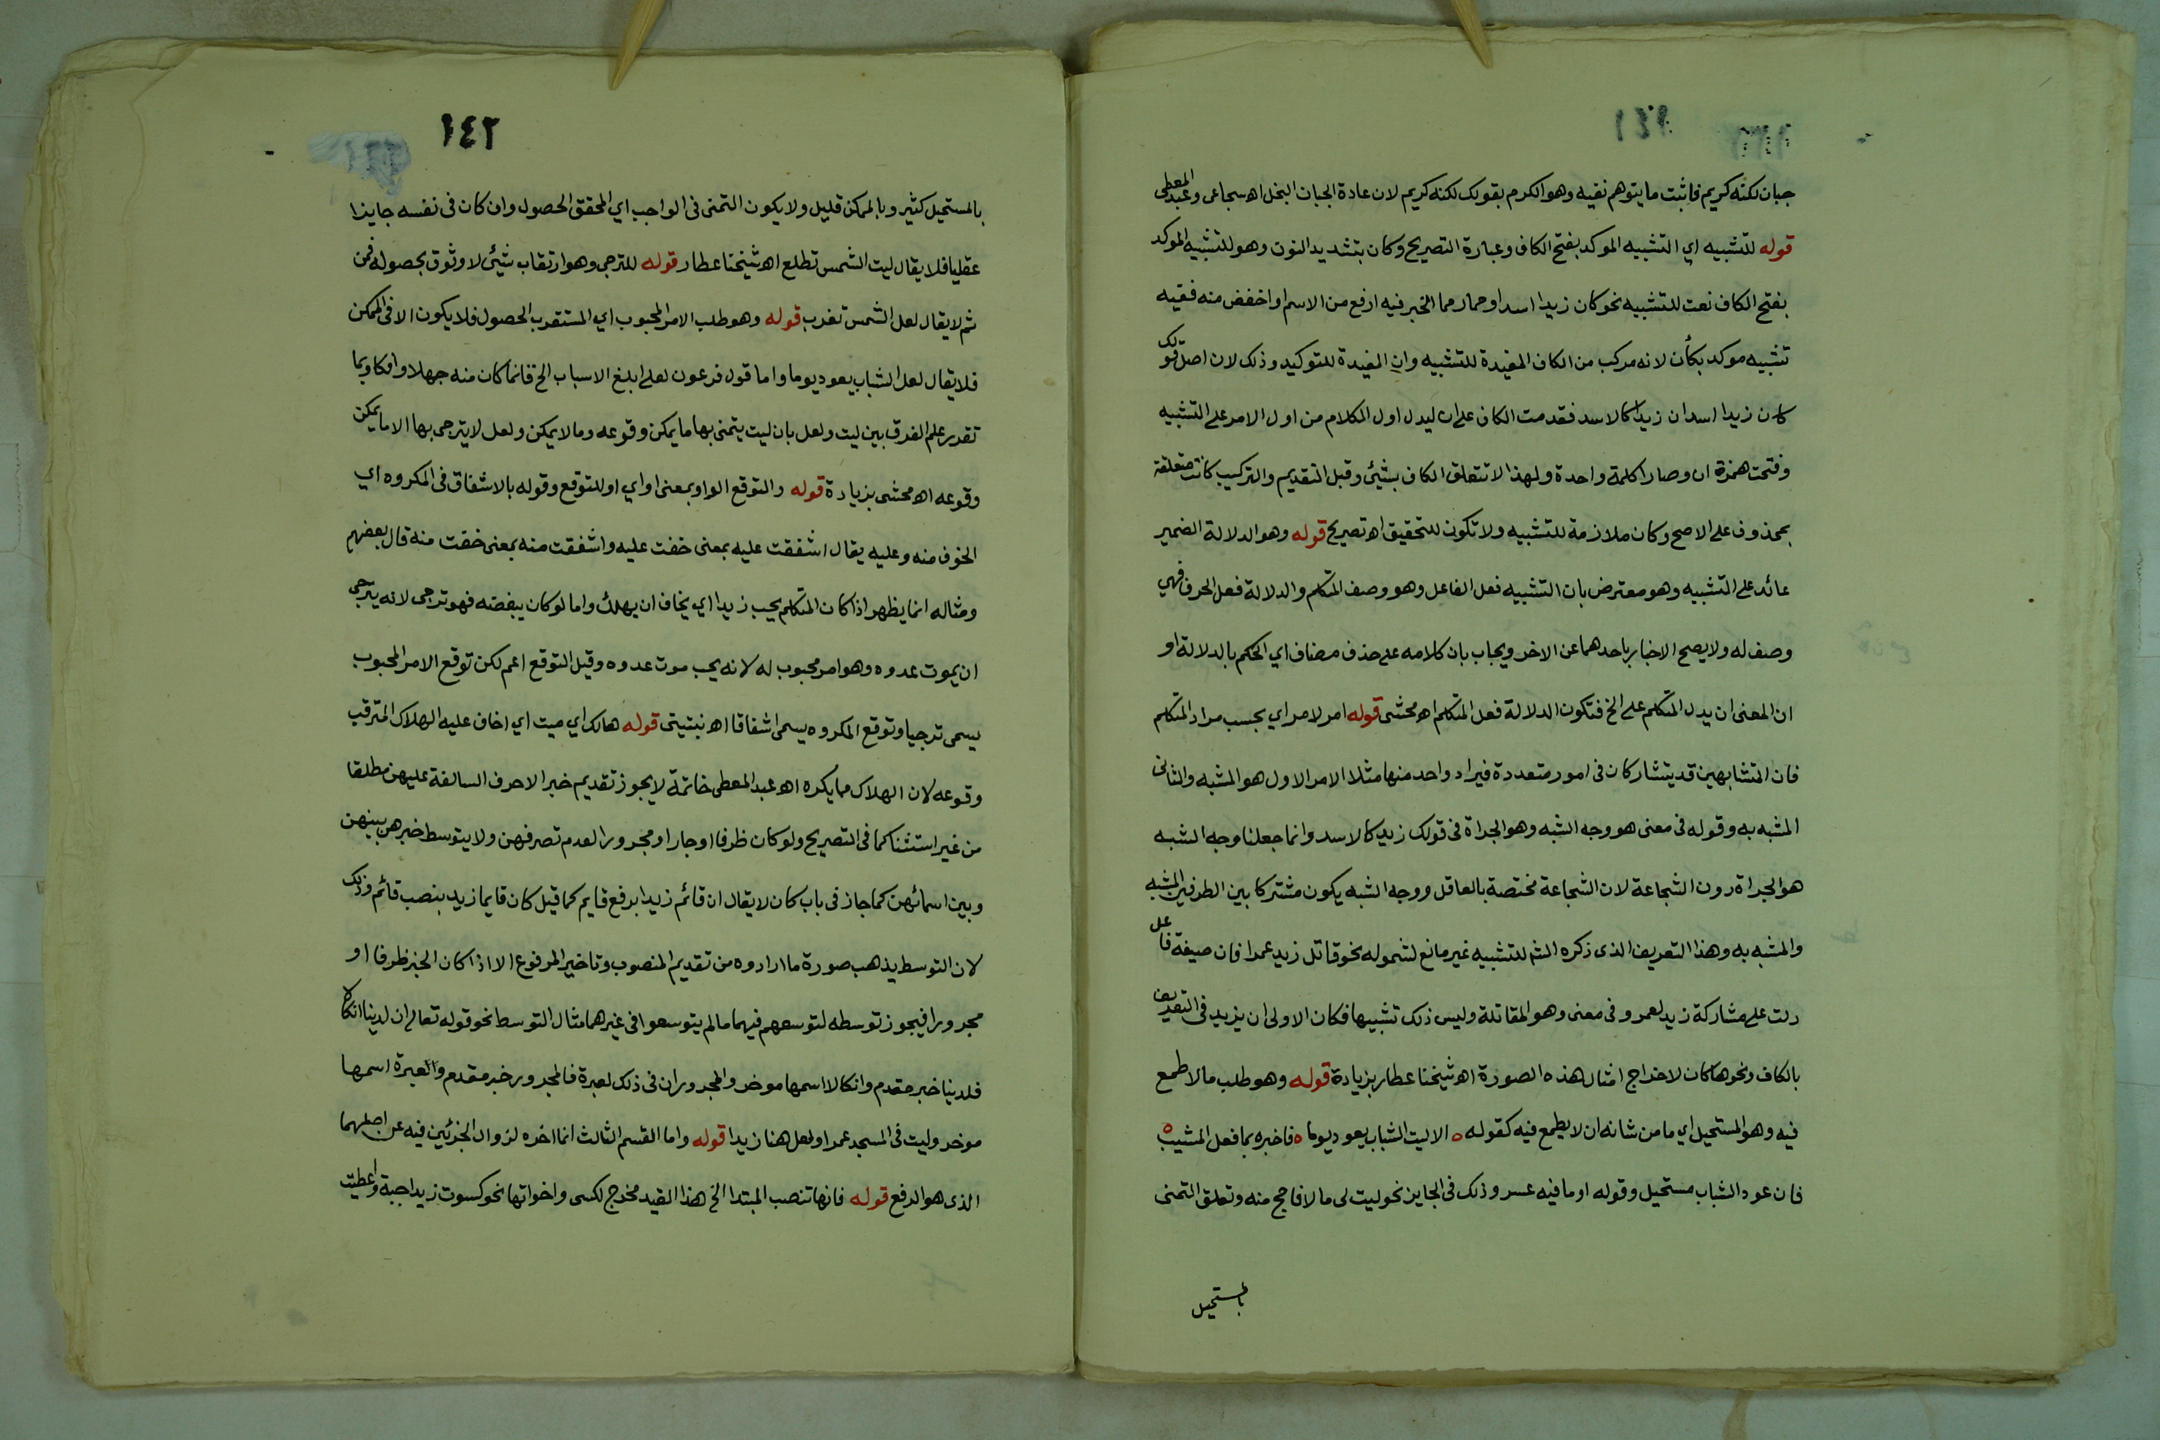 ١٤١
جبان لكنه كريم فاثبت ما يتوهم نفيه وهو الكرم بقولك لكنه كريم لان عادة الجبان البخل اه سجاعى وعبد المعطى
قوله للتشبيه اي التشبيه الموكد بفتح الكاف وعبارة التصريح وكان بتشديد النون وهو للتشبيه الموكد
بفتح الكاف نعت للتشبيه نحو كان زيدا اسد او حمار مما الخبر فيه ارفع من الاسم او اخفض منه ففيه
تشبيه موكد بكأن لانه مركب من الكاف المفيدة للتشبيه وان المفيدة للتوكيد وذلك لان اصل قولك
كان زيدا اسد ان زيدا كالاسد فقدمت الكاف على ان ليدل اول الكلام من اول الامر على التشبيه
وفتحت همزة ان وصارا كلمة واحدة ولهذا لا تتعلق الكاف بشيئ وقبل التقديم والتركيب كانت متعلقة
بمحذوف على الاصح وكان ملازمة للتشبيه ولا تكون للتحقيق اه تصريح قوله وهو الدلالة الضمير
عائد على التشبيه وهو معترض بان التشبيه فعل الفاعل وهو وصف المتكلم والدلالة فعل الحرف فهي
وصف له ولا يصح الاخبار باحدهما عن الاخر ويجاب بان كلامه على حذف مضاف اي الحكم بالدلالة او
ان المعنى ان يدل المتكلم على الخ فتكون الدلالة فعل المتكلم اه محشى قوله امر لامر اي بحسب مراد المتكلم
فان المتشابهين قد يتشاركان فى امور متعددة فيراد واحد منها مثلا الامر الاول هو المشبه والثانى
المشبه به وقوله فى معنى هو وجه الشبه وهو الجراة فى قولك زيد كالاسد وانما جعلنا وجه الشبه
هو الجراة دون الشجاعة لان الشجاعة مختصة بالعاقل ووجه الشبه يكون مشتركا بين الطرفين المشبه
والمشبه به وهذا التعريف الذى ذكره الشم للتشبيه غير مانع لشموله نحو قاتل زيد عمرا فان صيغة فاعل
دلت على مشاركة زيد لعمرو فى معنى وهو المقاتلة وليس ذلك تشبيها فكان الاولى ان يزيد فى التعريف
بالكاف ونحوها كان لاخراج امثال هذه الصورة اه شيخنا عطار بزيادة قوله وهو طلب ما لا طمع
فيه وهو المستحيل اي ما من شانه ان لا يطمع فيه كقوله ه الا ليت الشباب يعود يوما ه فاخبره بما فعل المشيب ه
فان عود الشباب مستحيل وقوله او ما فيه عسر وذلك فى الجايز نحو ليت لى مالا فاحج منه وتعلق التمنى
بالمستحيل
١٤٢
بالمستحيل كثير وبالممكن قليل ولا يكون التمنى فى الواجب اي المحقق الحصول وان كان فى نفسه جايزا
عقليا فلا يقال ليت الشمس تطلع اه شيخنا عطار قوله للترجى وهو ارتقاب شيئ لا وثوق بحصوله فمن
ثم لا يقال لعل الشمس تغرب قوله وهو طلب الامر المحبوب اي المستقرب الحصول فلا يكون الا فى الممكن
فلا يقال لعل الشباب يعود يوما واما قول فرعون لعلى ابلغ الاسباب الخ فانما كان منه جهلا وافكا وبما
تقدر علم الفرق بين ليت ولعل بان ليت يتمنى بها ما يمكن وقوعه وما لا يمكن ولعل لا يترجى بها الا ما يمكن
وقوعه اه محشى بزيادة قوله والتوقع الواو بمعنى او اي او للتوقع وقوله بالاشفاق فى المكروه اي
الخوف منه وعليه يقال اشفقت عليه بمعنى خفت عليه واشفقت منه بمعنى خفت منه قال بعضهم
ومثاله انما يظهر اذا كان المتكلم يحب زيدا اي يخاف ان يهلك واما لو كان يبغضه فهو ترجى لانه يترجى
ان يموت عدوه وهو امر محبوب له لانه يحب موت عدوه وقيل التوقع اعم لكن توقع الامر المحبوب
يسمى ترجيا وتوقع المكروه يسمى اشفاقا اه نبتيتى قوله هالك اي ميت اي اخاف عليه الهلاك المترقب
وقوعه لان الهلاك مما يكره اه عبد المعطى خاتمة لا يجوز تقديم خبر الاحرف السالفة عليهن مطلقا
من غير استثنا كما فى التصريح ولو كان ظرفا او جارا ومجرورا لعدم تصرفهن ولا يتوسط خبرهن بينهن
وبين اسمائهن كما جاز فى باب كان لا يقال ان قائم زيدا برفع قايم كما قيل كان قايما زيد بنصب قائم وذلك
لان التوسط يذهب صورة ما ارادوه من تقديم المنصوب وتاخير المرفوع الا اذا كان الخبر ظرفا او
مجرورا فيجوز توسطه لتوسعهم فيهما ما لم يتوسعوا فى غيرهما مثال التوسط نحو قوله تعالى ان لدينا انكالا
فلدينا خبر مقدم وانكالا اسمها موخر والمجرور ان فى ذلك لعبرة فالمجرور خبر مقدم والعبرة اسمها
موخر وليت فى المسجد عمرا ولعل هنا زيدا قوله واما القسم الثالث انما اخره لزوال الجزئين فيه عن اصلهما
الذى هو الرفع قوله فانها تنصب المبتدا الخ هذا القيد مخرج لكسى واخواتها نحو كسوت زيدا جبة واعطيت